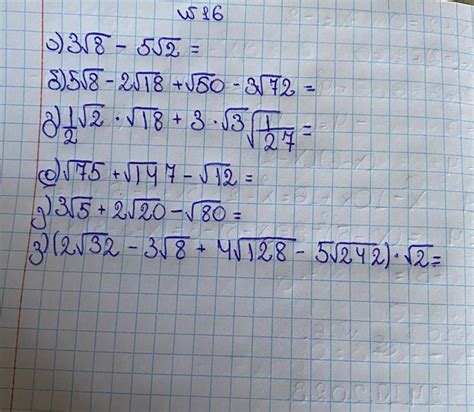 № 16
а) 3√8 - 5√2 =
б) 5√8 - 2√18 + √50 - 3√72 =
г) 1/2 √2 · √18 + 3 · √3 √1/27 =
е) √75 + √147 - √12 =
3√5 + 2√20 - √80 =
з) (2√32 - 3√8 + 4√128 - 5√242) · √2 =